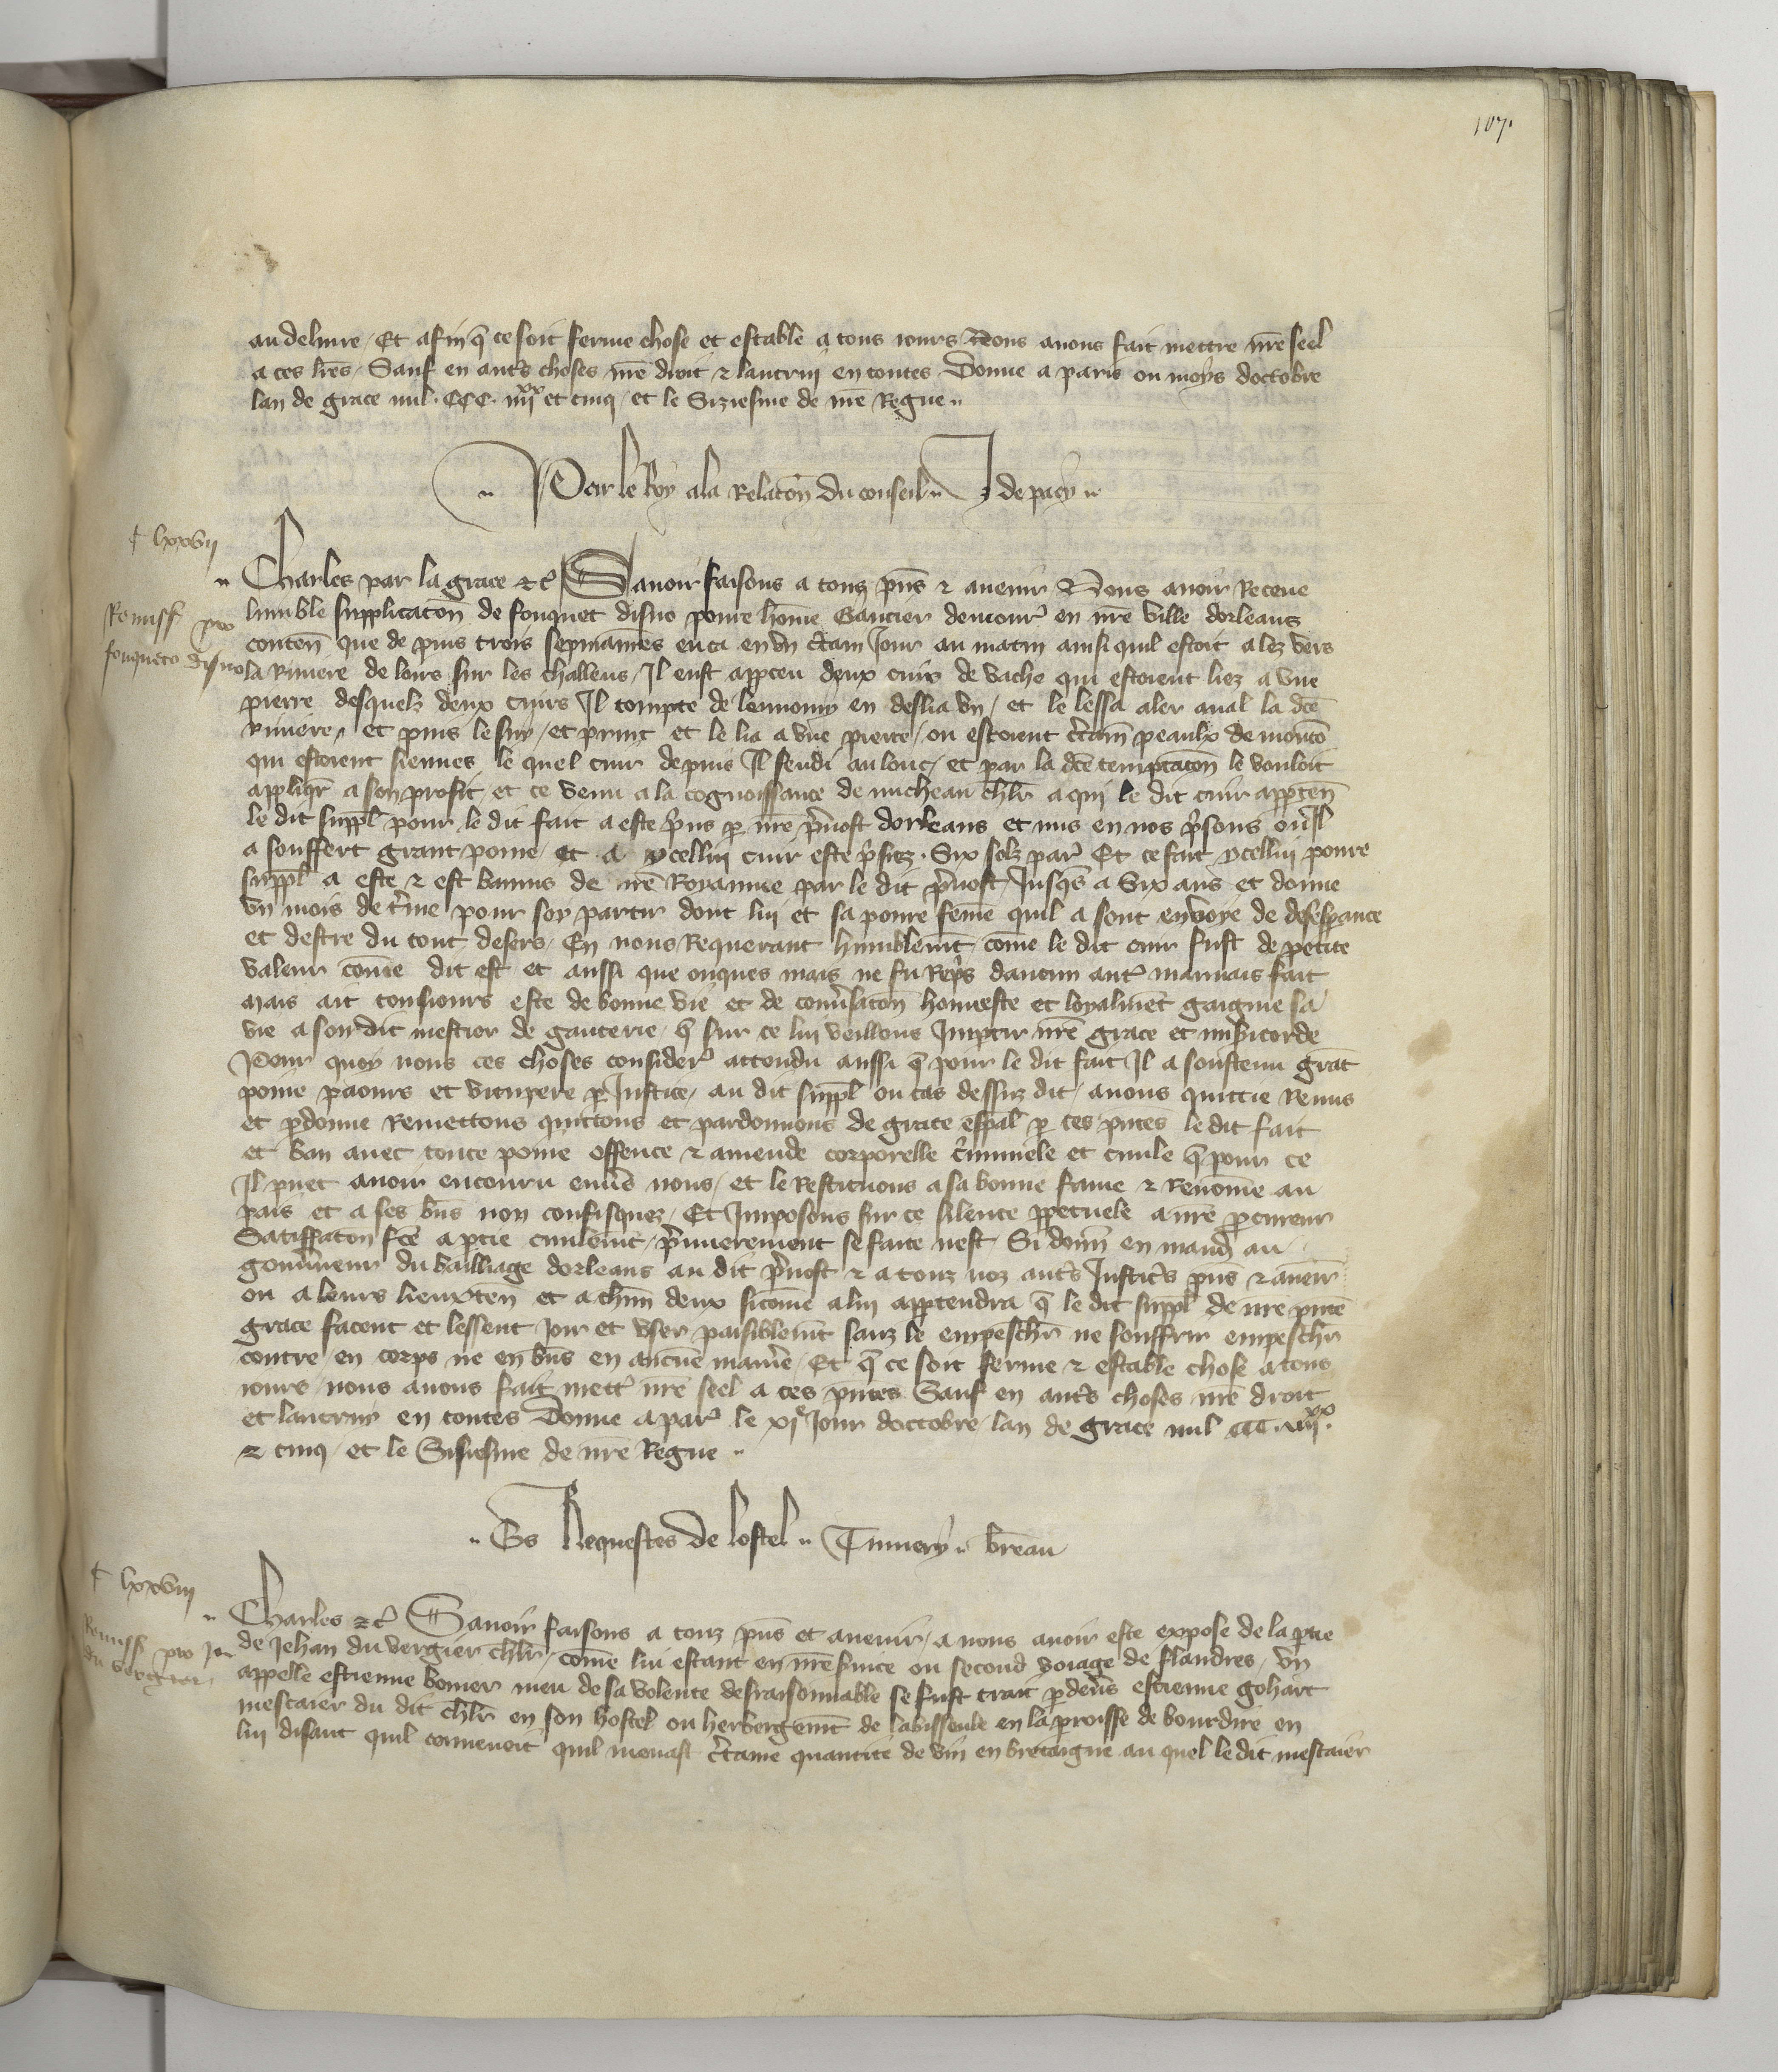 107.
au delivre Et afin q̄ ce soit ferme chose et estable a tous iours Nous avons fait mettre nr̄e seel
a ces lr̄es Sauf en autr̄s choses nr̄e droit & lautrui en toutes Donne a paris ou moys doctobre
lan de grace mil CCC iiij xx et cinq et le Siziesme de nr̄e Regne
Par le Roy a la Relacōn du conseil J de pacy
lxxvij
Charles par la grace &c̄ Savoir faisons a touz pn̄s & avenir Nous avoir Receue
Remiss̄ pro
lumble supplicacōn de fouquet disno povre hōme Gantier demour̄ en nr̄e ville dorleans
fouqueto disno
conten̄ que de puis trois sepmaines en ca en un c̄tain Jour au matin ainsi quil estoit alez vers
la Riviere de loire sur les challens Il eust app̄ceu deux cuirs de vache qui estoient liez a une
pierre desquelz deux cuirs Il tempte de lennemy en deslia un et le lessa aler aval la dc̄e
Riviere et puis le suy et print et le lia a une pierre ou estoient c̄tain̄ peaulx de moutō
qui estoient siennes le quel cuir depuis Il fendi au long et par la dc̄e temptacōn le vouloit
appliqr̄ a son profit et ce venu a la cognoissance de micheau chl̄r a qui le dit cuir app̄ten̄
le dit suppl̄ pour le dit fait a este p̄ns p̄ nr̄e p̄vost dorleans et mis en nos p̄sons ou Il
a souffert grant poine et a ycellui cuir este p̄siez Six solz par̄ Et ce fait ycellui povre
suppl̄ a este & est bannis de nr̄e Royaume par le dit p̄vost Jusq̄s a Six ans et donne
un mois de t̄me pour soy partir dont lui et sa povre fēme quil a sont en voye de desesp̄ance
et destre du tout desers En nous Requerant humblem̄t cōme le dit cuir fust de petite
valeur cōme dit est et aussi que onques mais ne fu Rep̄s daucun autr̄ mauvais fait
mais ait tousiours este de bonne vie et de conv̄sacōn honneste et loyalmēt gaigne sa
vie a son dit mestier de ganterie q̄ sur ce lui veillons Imp̄tir nr̄e grace et mis̄icorde
Pour quoy nous ces choses consider̄ attendu aussi q̄ pour le dit fait Il a soustenu grāt
poine paours et vitupere p̄ Justice au dit suppl̄ ou cas dessuz dit avons quittie Remis
et p̄donne Remettons quittons et pardonnons de grace esp̄al p̄ ces pn̄tes le dit fait
et ban avec toute poine offence & amende corporelle c̄minele et civile q̄ pour ce
Il puet avoir encouru env̄s nous et le Restituons a sa bonne fame & Renōmee au
pais et a ses bn̄s non confisquez Et Imposons sur ce silence pp̄etuele a nr̄e p̄cureur
Satiffacōn fc̄e a p̄tie civilem̄t p̄mierement se faite nest Si donn̄ en mand̄ au
gouv̄neur du bailliage dorleans au dit p̄vost & a touz noz autr̄s Justic̄s pn̄s & aveīr
ou a leurs lieuxten̄ et a chūn deux sicōme a lui app̄tendra q̄ le dit suppl̄ de nr̄e pn̄te
grace facent et lessent Joir et user paisiblem̄t sanz le empeschr̄ ne souffrir empeschr̄
contre en corps ne en bn̄s en aucūe man̄re Et q̄ ce soit ferme & estable chose a tous
iours nous avons fait mettr̄ nr̄e seel a ces pn̄tes Sauf en autr̄s choses nr̄e droit
et lautruy en toutes Donne a par̄ le xi e Jour doctobre lan de grace mil CCC iiij xx
& cinq et le Sisiesme de nr̄e Regne
Es Requestes de lostel Tinnery breau
lxxviij
Charles &c̄ Savoir faisons a touz pn̄s et avenir a nous avoir este expose de la p̄tie
Remiss̄ pro Je
de Jehan du vergier chl̄r cōme lui estant en nr̄e s̄vice ou second voiage de flandres un
du vergier
appelle estienne bonier meu de sa volente desraisonnable se fust trait p̄dev̄s estienne gohart
mestaier du dit chl̄r en son hostel ou herbergem̄t de labisseule en la p̄roisse de bourdire en
lui disant quil convenoit quil menast c̄taine quantite de vin en bretaigne au quel le dit mestaier